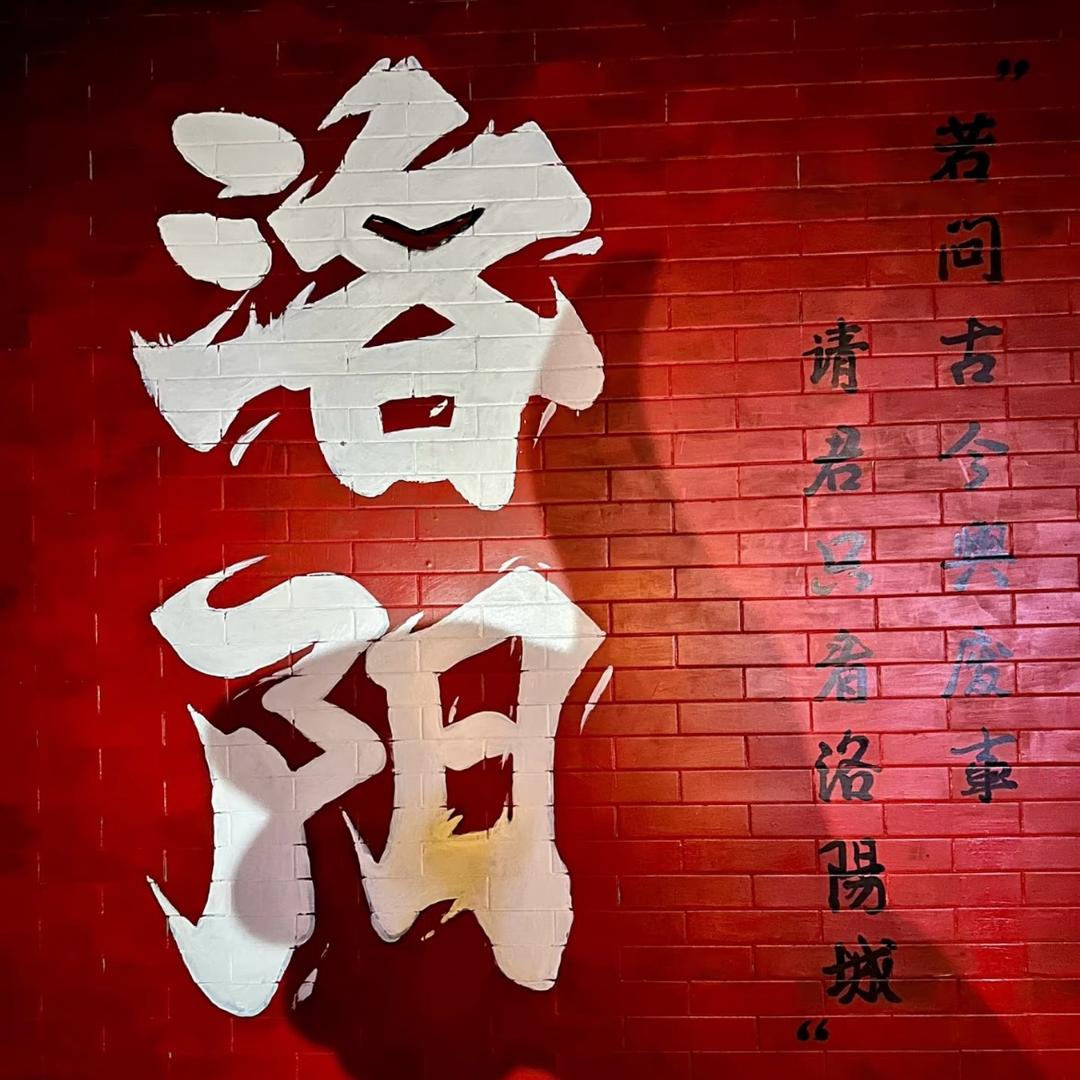 洛阳
”若问古今興废事
请君只看洛陽城“